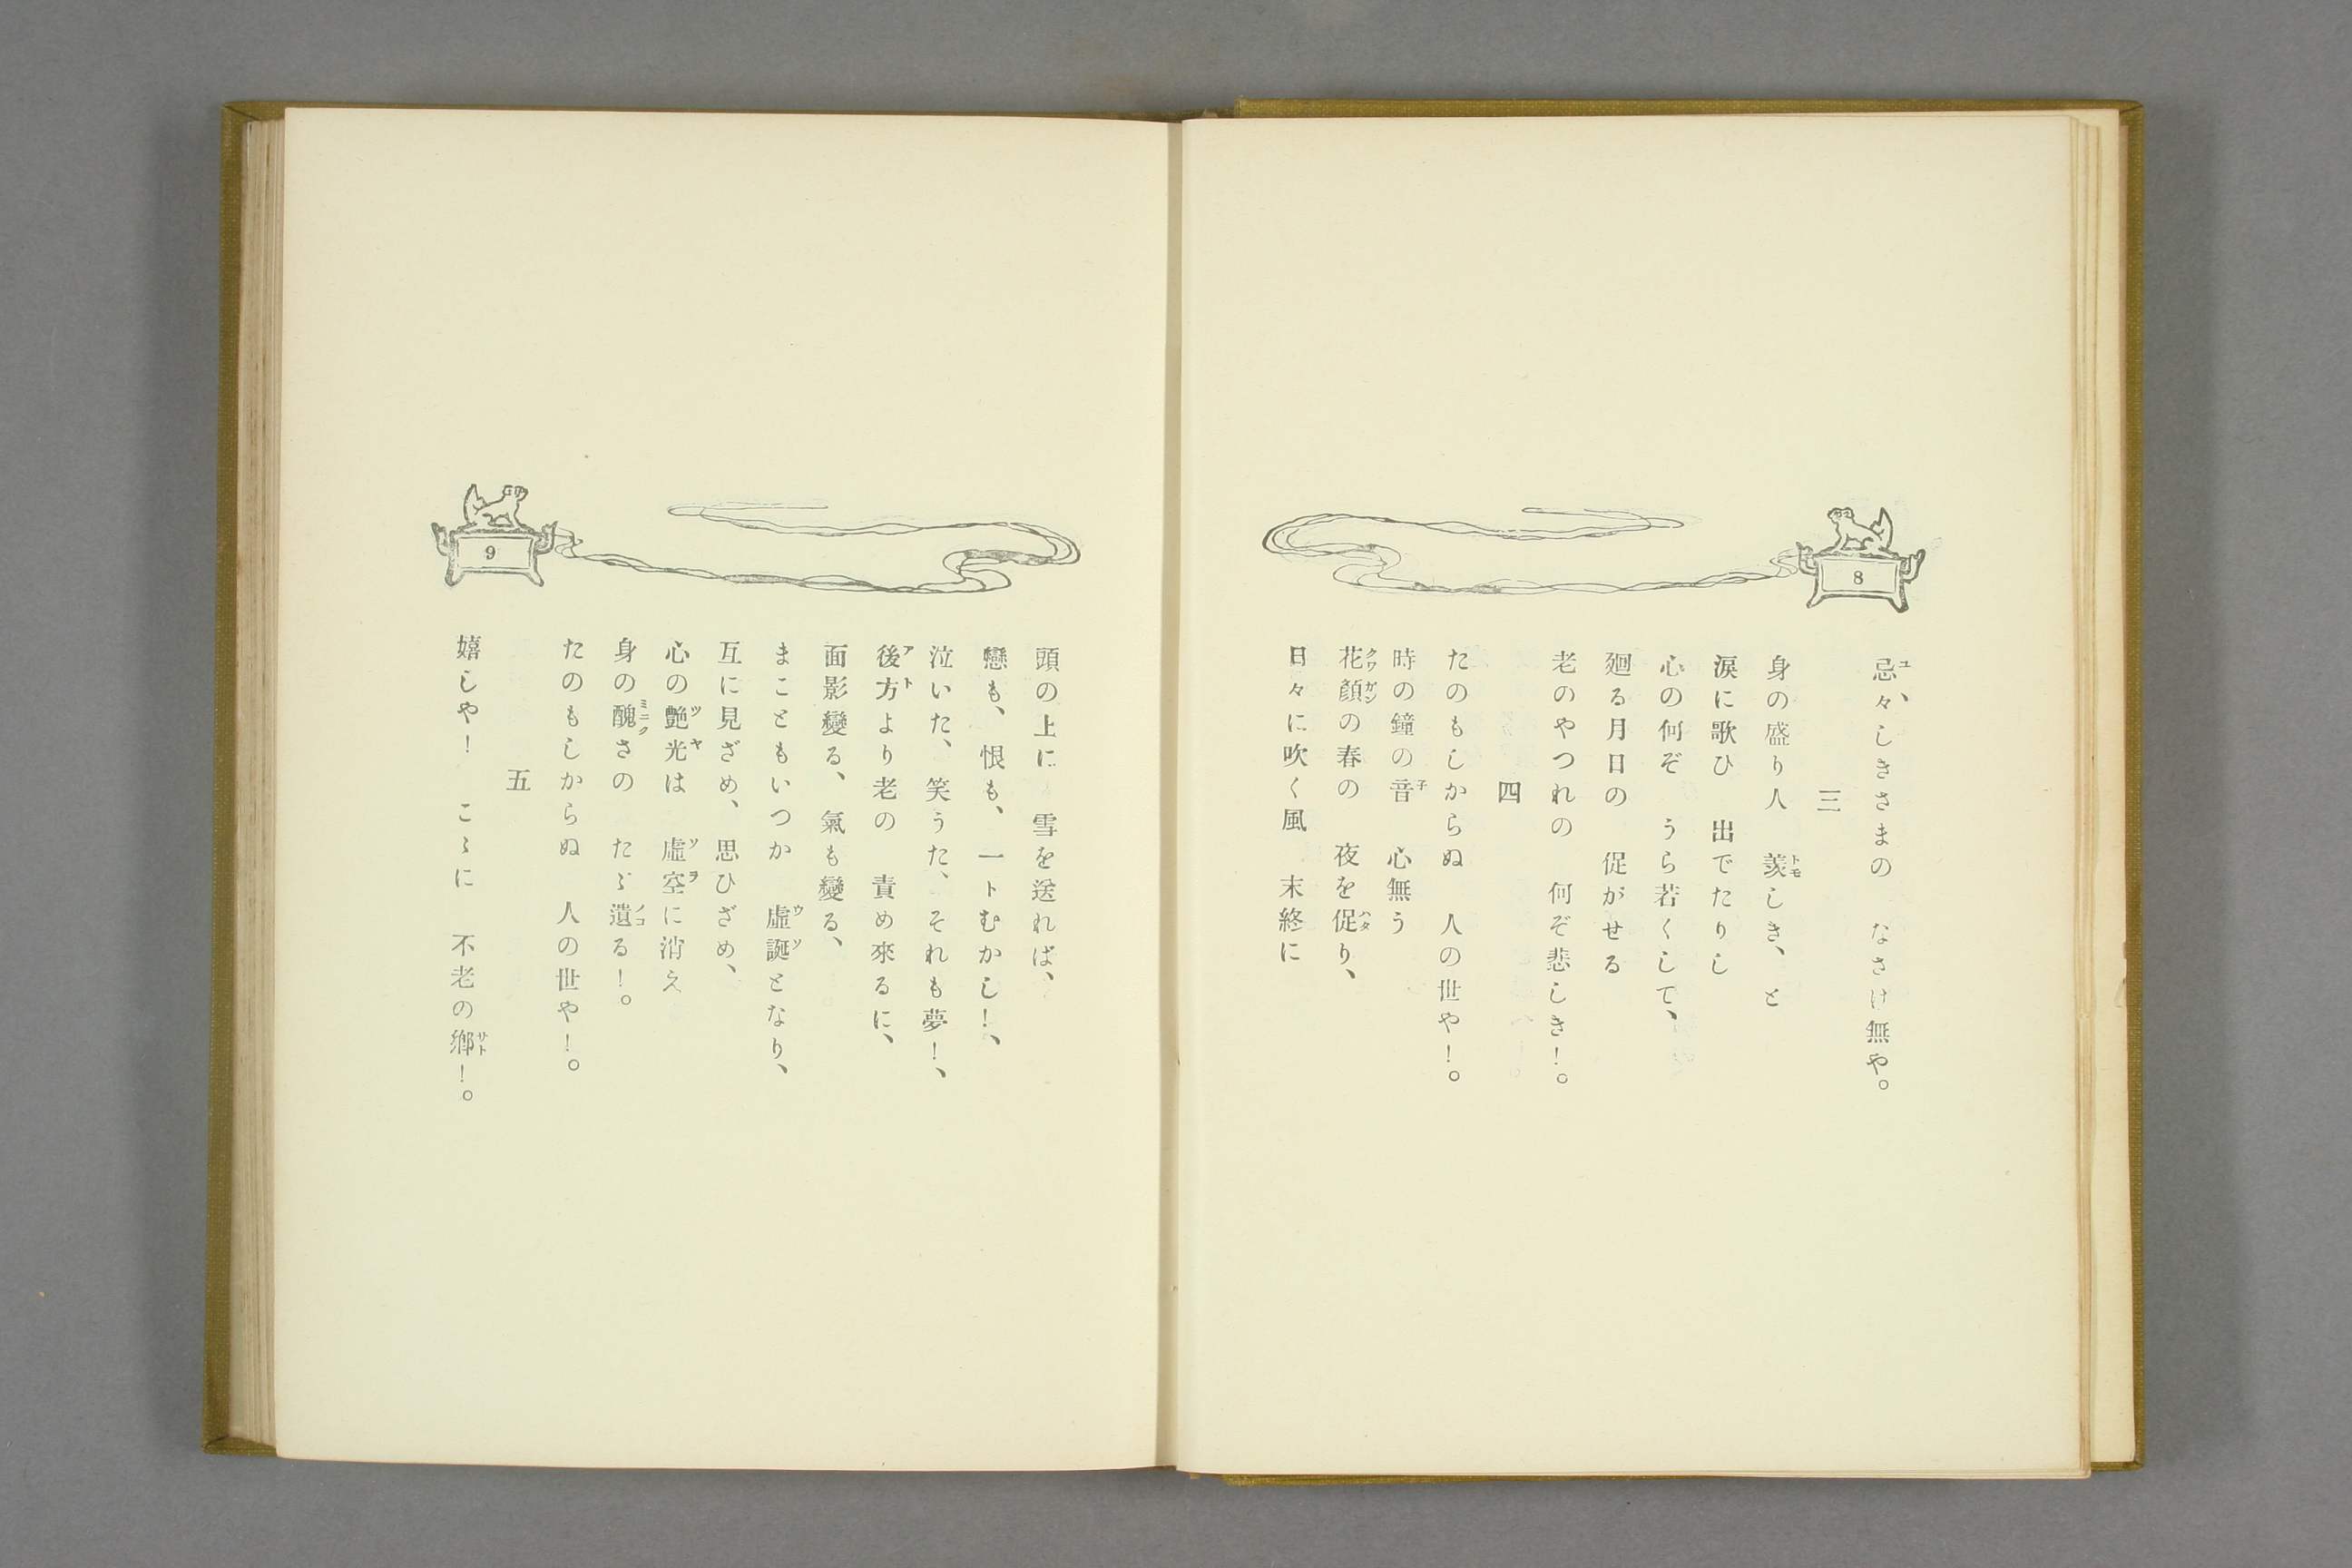 8
忌々しきさまの　なさけ無や。
三
身の盛り人　羨しき、と
涙に歌ひ　出でたりし
心の何ぞ　うら若くして、
廻る月日の　促がせる
老のやつれの　何ぞ悲しき！。
四
たのもしからぬ　人の世や！。
時の鐘の音　心無う
花顔の春の　夜を促り、
日々に吹く風　末終に
9
頭の上に　雪を送れば、
戀も、恨も、一トむかし！、
泣いた、笑うた、それも夢！、
後方より老の　責め來るに、
面影變る、氣も變る、
まこともいつか　虛誕となり、
互に見ざめ、思ひざめ、
心の艶光は　虛空に消え
身の醜さの　たゞ遺る！。
たのもしからぬ　人の世や！。
五
嬉しや！　こゝに　不老の鄕！。